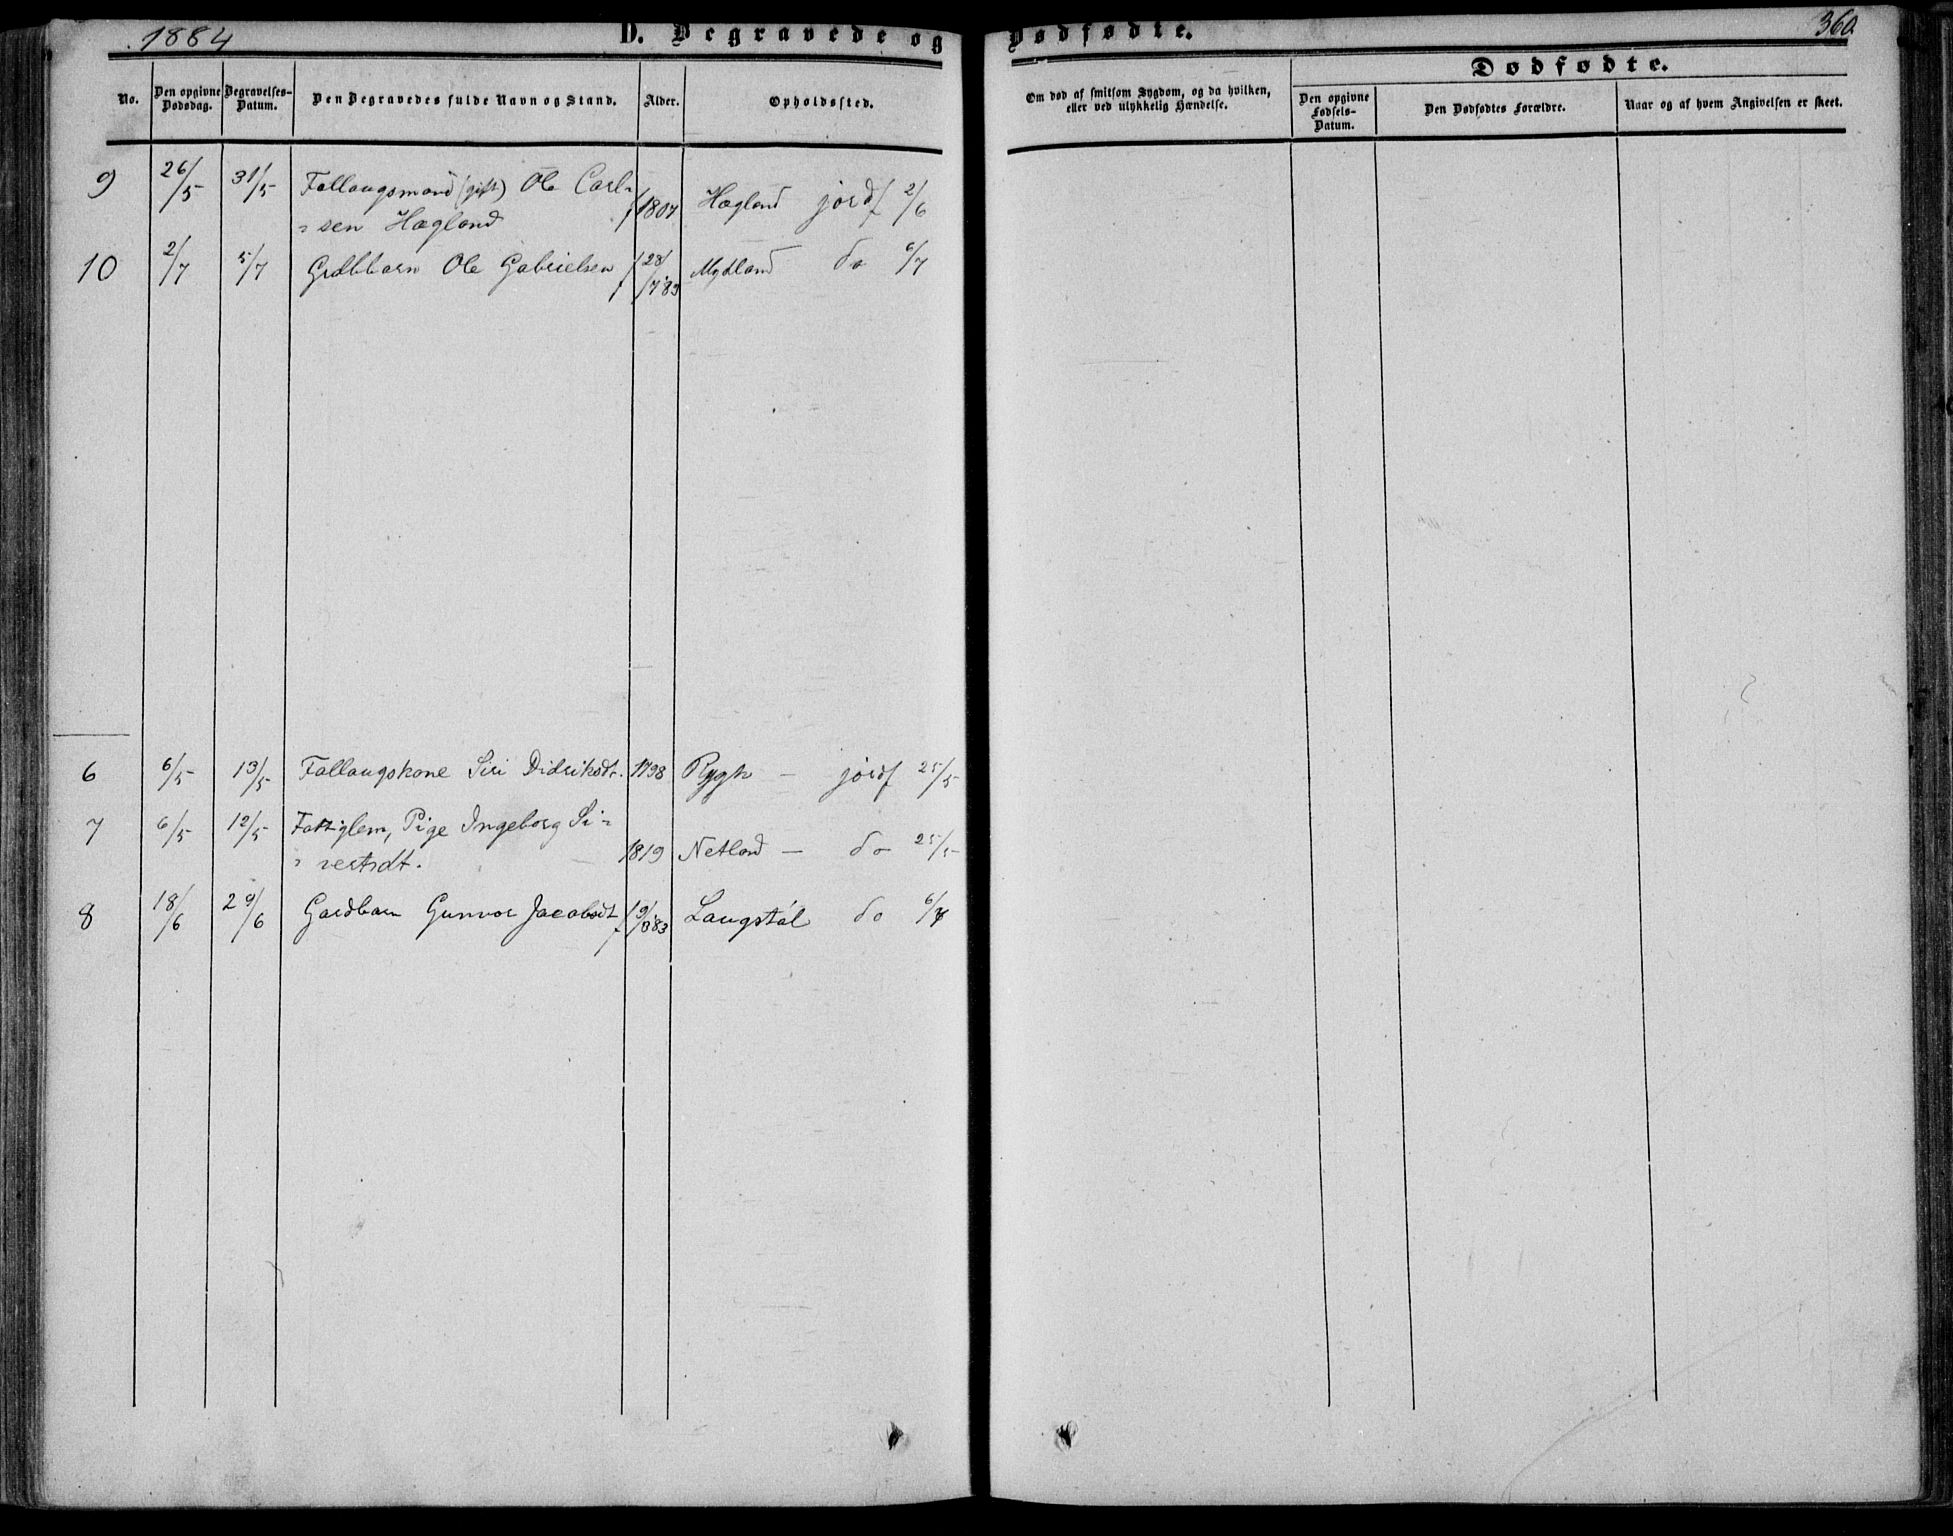 1884
D. Begravede og Dødfødte.
360.
No.
Den opgivne Dødsdag.
Begravelses-Datum.
Den Begravedes fulde Navn og Stand.
Alder.
Opholdssted.
Om død af smitsom Sygdom, og da hvilken, eller ved ulykkelig Hændelse.
Dødfødte.
Den opgivne Fødsels-Datum.
Den Dødfødtes Forældre.
Naar og af hvem Angivelsen er skeet.
9 26/5 31/5 Follaugsmand (gift) Ole Carl-
=sen Hægland f 1807 Hægland jordf 2/6
10 2/7 5/7 Grdbbarn Ole Gabrielsen f 28/7 83 Mydland do 6/7
6 6/5 13/5 Follaugskone Siri Didriksdt. 1798 Rygh — jordf 25/5
7 6/5 12/5 Fattiglem, Pige Ingeborg Si=
=vertsdt. 1819 Netland — do 25/5
8 18/6 29/6 Gardbarn Gunvor Jacobsdt f 19/8 83 Langstøl do 6/7